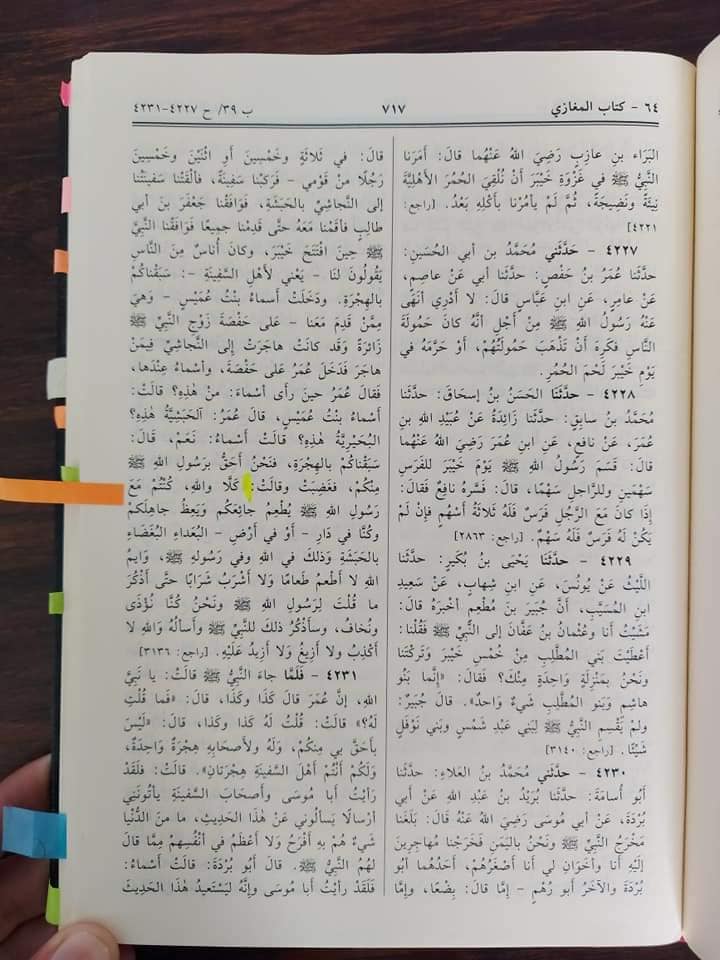 ٦٤ - كتاب المغازي
٧١٧
ب ٣٩/ ح ٤٢٢٧-٤٢٣١
البَرَاءِ بنِ عازِبٍ رَضِيَ اللهُ عَنْهُما قالَ: أمَرَنا
النَّبِيُّ ﷺ في غَزْوَةِ خَيْبَرَ أنْ نُلْقِيَ الحُمُرَ الأهْلِيَّةَ
نِيئَةً ونَضِيجَةً، ثُمَّ لَمْ يأمُرْنا بأكْلِهِ بَعْدُ. [راجع:
٤٢٢١]
٤٢٢٧ - حَدَّثَني مُحَمَّدُ بنُ أبي الحُسَيْنِ:
حدَّثَنا عُمَرُ بنُ حَفْصٍ: حدَّثَنا أبي عَنْ عاصِمٍ،
عَنْ عامِرٍ، عَنِ ابنِ عَبَّاسٍ قالَ: لا أدْرِي أنَهَى
عَنْهُ رَسُولُ اللهِ ﷺ مِنْ أجْلِ أنَّهُ كانَ حَمُولَةَ
النَّاسِ فَكَرِهَ أنْ تَذْهَبَ حَمُولَتُهُمْ، أوْ حَرَّمَهُ في
يَوْمِ خَيْبَرَ لَحْمَ الحُمُرِ.
٤٢٢٨ - حدَّثَنا الحَسَنُ بنُ إسحَاقَ: حدَّثَنا
مُحَمَّدُ بنُ سابِقٍ: حدَّثَنا زَائِدَةُ عَنْ عُبَيْدِ اللهِ بنِ
عُمَرَ، عَنْ نافِعٍ، عَنِ ابنِ عُمَرَ رَضِيَ اللهُ عَنْهُما
قالَ: قَسَمَ رَسُولُ اللهِ ﷺ يَوْمَ خَيْبَرَ لِلْفَرَسِ
سَهْمَينِ ولِلراجِلِ سَهْمًا، قالَ: فَسَّرَهُ نافِعٌ فَقالَ:
إذَا كانَ مَعَ الرَّجُلِ فَرَسٌ فَلَهُ ثَلاثَةُ أسْهُمٍ فإنْ لَمْ
يَكُنْ لَهُ فَرَسٌ فَلَهُ سَهْمٌ. [راجع: ٢٨٦٣]
٤٢٢٩ - حدَّثَنا يَحْيَى بنُ بُكَيرٍ: حدَّثَنا
اللَّيْثُ عَنْ يُونُسَ، عَنِ ابنِ شِهابٍ، عَنْ سَعِيدِ
ابنِ المُسَيَّبِ، أنَّ جُبَيرَ بنَ مُطْعِمٍ أخبَرَهُ قالَ:
مَشَيْتُ أنا وعُثْمانُ بنُ عَفَّانَ إلى النَّبيِّ ﷺ فَقُلْنا:
أعْطَيْتَ بَني المُطَّلِبِ مِنْ خُمْسِ خَيْبَرَ وتَرَكْتَنا
ونَحْنُ بِمَنْزِلَةٍ وَاحِدَةٍ مِنْكَ؟ فَقالَ: «إنَّما بَنُو
هاشِمٍ وَبَنو المُطَّلِبِ شَيْءٌ وَاحِدٌ». قالَ جُبَيرٌ:
ولمْ يَقْسِمِ النَّبيُّ ﷺ لِبَني عَبْدِ شَمْسٍ وبَني نَوْفَلٍ
شَيْئًا. [راجع: ٣١٤٠]
٤٢٣٠ - حدَّثَني مُحَمَّدُ بنُ العَلاءِ: حدَّثَنا
أبُو أُسامَةَ: حدَّثَنا بُرَيْدُ بنُ عَبْدِ اللهِ عَنْ أبي
بُرْدَةَ، عَنْ أبي مُوسَى رَضِيَ اللهُ عَنْهُ قالَ: بَلَغَنا
مَخْرَجُ النَّبيِّ ﷺ ونَحْنُ باليَمَنِ فَخَرَجْنا مُهاجِرِينَ
إلَيْهِ أنا وأخَوَانِ لي أنا أصْغَرُهُمْ، أحَدُهُما أبُو
بُرْدَةَ والآخَرُ أبو رُهْمٍ - إمَّا قالَ: بِضْعًا، وإمَّا
قالَ: في ثَلاثَةٍ وخَمْسِينَ أوِ اثْنَيْنِ وخَمْسِينَ
رَجُلًا مِنْ قَوْمي - فَرَكِبْنا سَفِينَةً، فألْقَتْنا سَفِينَتُنا
إلى النَّجاشِيِّ بالحَبَشَةِ، فَوَافَقْنا جَعْفَرَ بنَ أبي
طالِبٍ فأقَمْنا مَعَهُ حتَّى قَدِمْنا جميعًا فَوَافَقْنا النَّبيَّ
ﷺ حِينَ افْتَتَحَ خَيْبَرَ، وكانَ أُناسٌ مِنَ النَّاسِ
يَقُولُونَ لنَا - يَعْني لأهْلِ السَّفِينَةِ -: سَبَقْناكُمْ
بالهِجْرَةِ. ودَخَلَتْ أسْماءُ بِنْتُ عُمَيْسٍ - وهِيَ
مِمَّنْ قَدِمَ مَعَنا - عَلى حَفْصَةَ زَوْجِ النَّبيِّ ﷺ
زَائِرَةً وَقد كانَتْ هاجَرَتْ إلى النَّجاشِيِّ فِيمَنْ
هاجَرَ فَدَخَلَ عُمَرُ عَلى حَفْصَةَ، وأسْماءُ عِنْدَها،
فَقالَ عُمَرُ حينَ رأى أسْماءَ: مَنْ هٰذِهِ؟ قالَتْ:
أسْماءُ بِنْتُ عُمَيْسٍ، قالَ عُمَرُ: آلحَبَشِيَّةُ هٰذِهِ؟
البُحَيْرِيَّةُ هٰذِهِ؟ قالَتْ أسْماءُ: نَعَمْ، قالَ:
سَبَقْناكُمْ بالهِجْرَةِ، فنَحْنُ أحَقُّ برَسُولِ اللهِ ﷺ
مِنْكُمْ، فغَضِبَتْ وقالَتْ: كَلَّا واللهِ، كُنْتُمْ مَعَ
رَسُولِ اللهِ ﷺ يُطْعِمُ جائِعَكُم ويَعِظُ جاهِلَكُمْ
وكُنَّا في دَارِ - أوْ في أرْضِ - البُعَداءِ البُغَضَاءِ
بالحَبَشَةِ وَذلكَ في اللهِ وفي رسُولِهِ ﷺ، وَايمُ
اللهِ لا أطْعَمُ طَعامًا وَلا أشْرَبُ شَرَابًا حتَّى أذْكُرَ
ما قُلْتَ لِرَسُولِ اللهِ ﷺ ونَحْنُ كُنَّا نُؤْذَى
ونُخافُ، وسأذْكُرُ ذلكَ للنَّبيِّ ﷺ وأسألُهُ واللهِ لا
أكْذِبُ ولا أزِيغُ وَلا أزِيدُ عَلَيْهِ. [راجع: ٣١٣٦]
٤٢٣١ - فَلَمَّا جاءَ النَّبيُّ ﷺ قالَتْ: يا نَبيَّ
اللهِ، إنَّ عُمَرَ قالَ كَذَا وكَذَا، قالَ: «فَما قُلْتِ
لَهُ؟» قالَتْ: قُلْتُ لَهُ كَذا وكَذا، قالَ: «لَيْسَ
بأحَقَّ بي مِنْكُمْ، وَلَهُ ولأصحَابِهِ هِجْرَةٌ وَاحِدَةٌ،
وَلَكُمْ أنْتُمْ أهْلَ السَّفِينَةِ هِجْرَتانِ». قالَتْ: فلَقَدْ
رَأيْتُ أبا مُوسَى وأصحَابَ السَّفينَةِ يأتُونَني
أرْسالًا يَسألُوني عَنْ هٰذَا الحَدِيثِ، ما مِنَ الدُّنْيا
شَيْءٌ هُمْ بِهِ أفْرَحُ وَلا أعْظَمُ في أنْفُسِهِمْ مِمَّا قالَ
لَهُمُ النَّبيُّ ﷺ. قالَ أبُو بُرْدَةَ: قالَتْ أسْماءُ:
فَلَقَدْ رأيْتُ أبَا مُوسَى وإنَّهُ ليَسْتَعِيدُ هٰذَا الحَدِيثَ